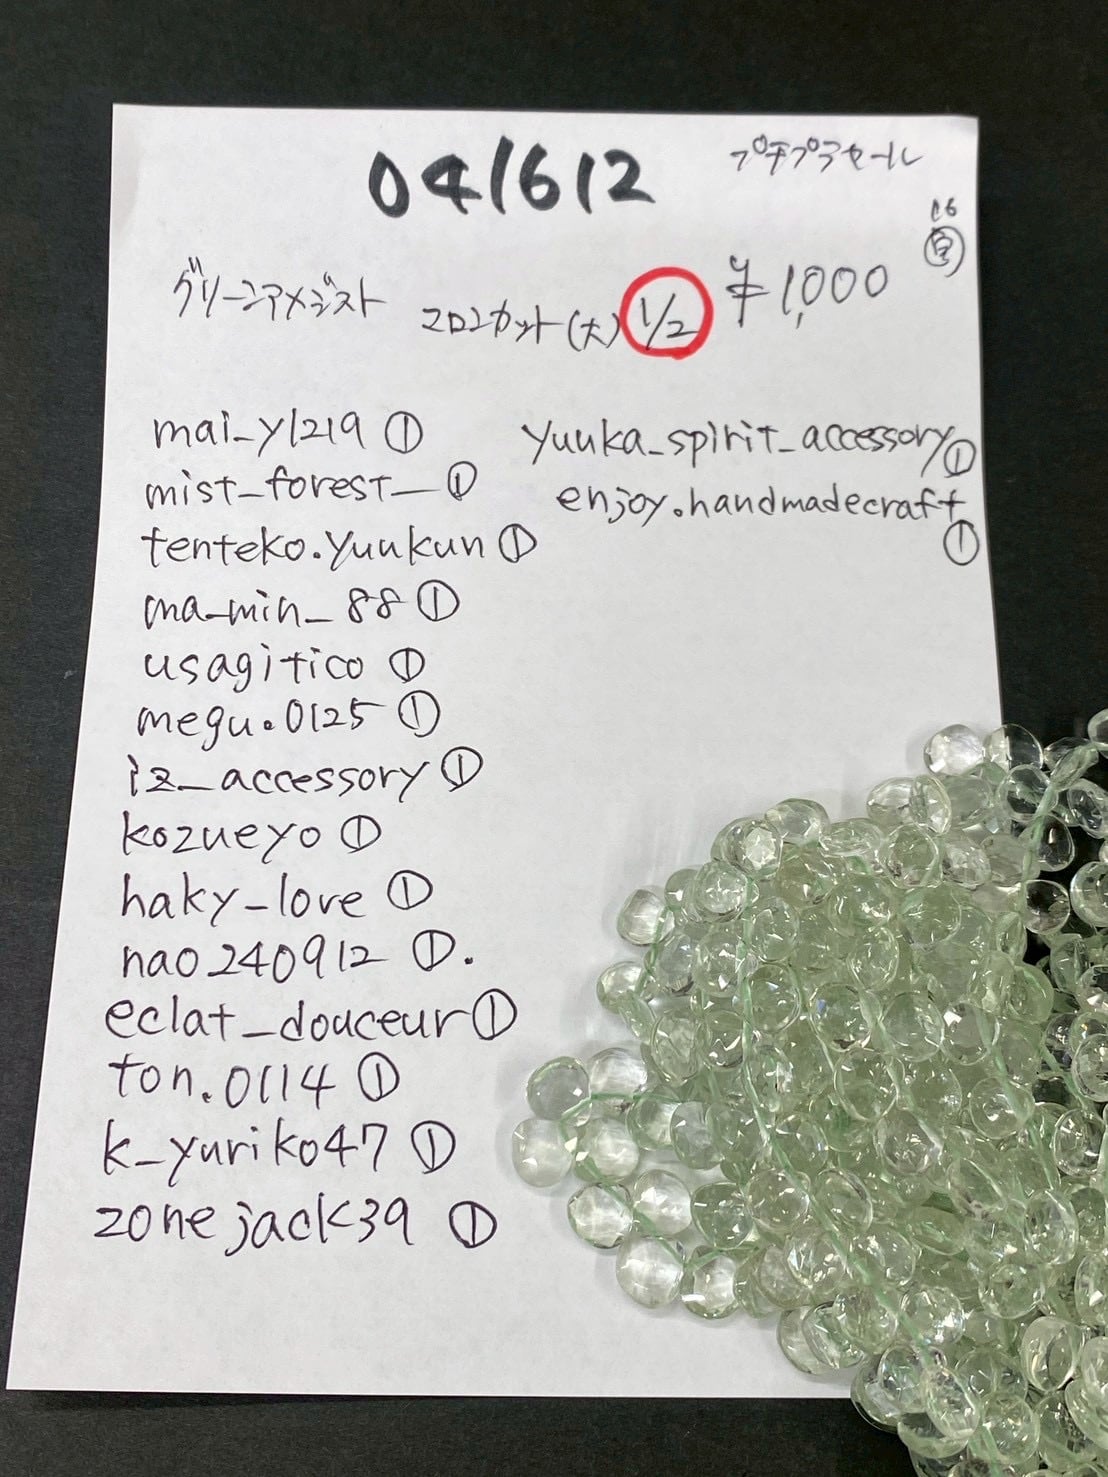 041612
プチプラセール
16
グリーンアメジスト
マロンカット(大) 1/2 ¥1,000
mai_y1219 ①
mist_forest_ ①
tenteko.yuukun ①
ma_min_88 ①
usagitico ①
megu.0125 ①
iz_accessory ①
kozueyo ①
haky_love ①
nao240912 ①.
eclat_douceur ①
ton.0114 ①
k_yuriko47 ①
zonejack39 ①
yuuka_spirit_accessory ①
enjoy.handmadecraft
①